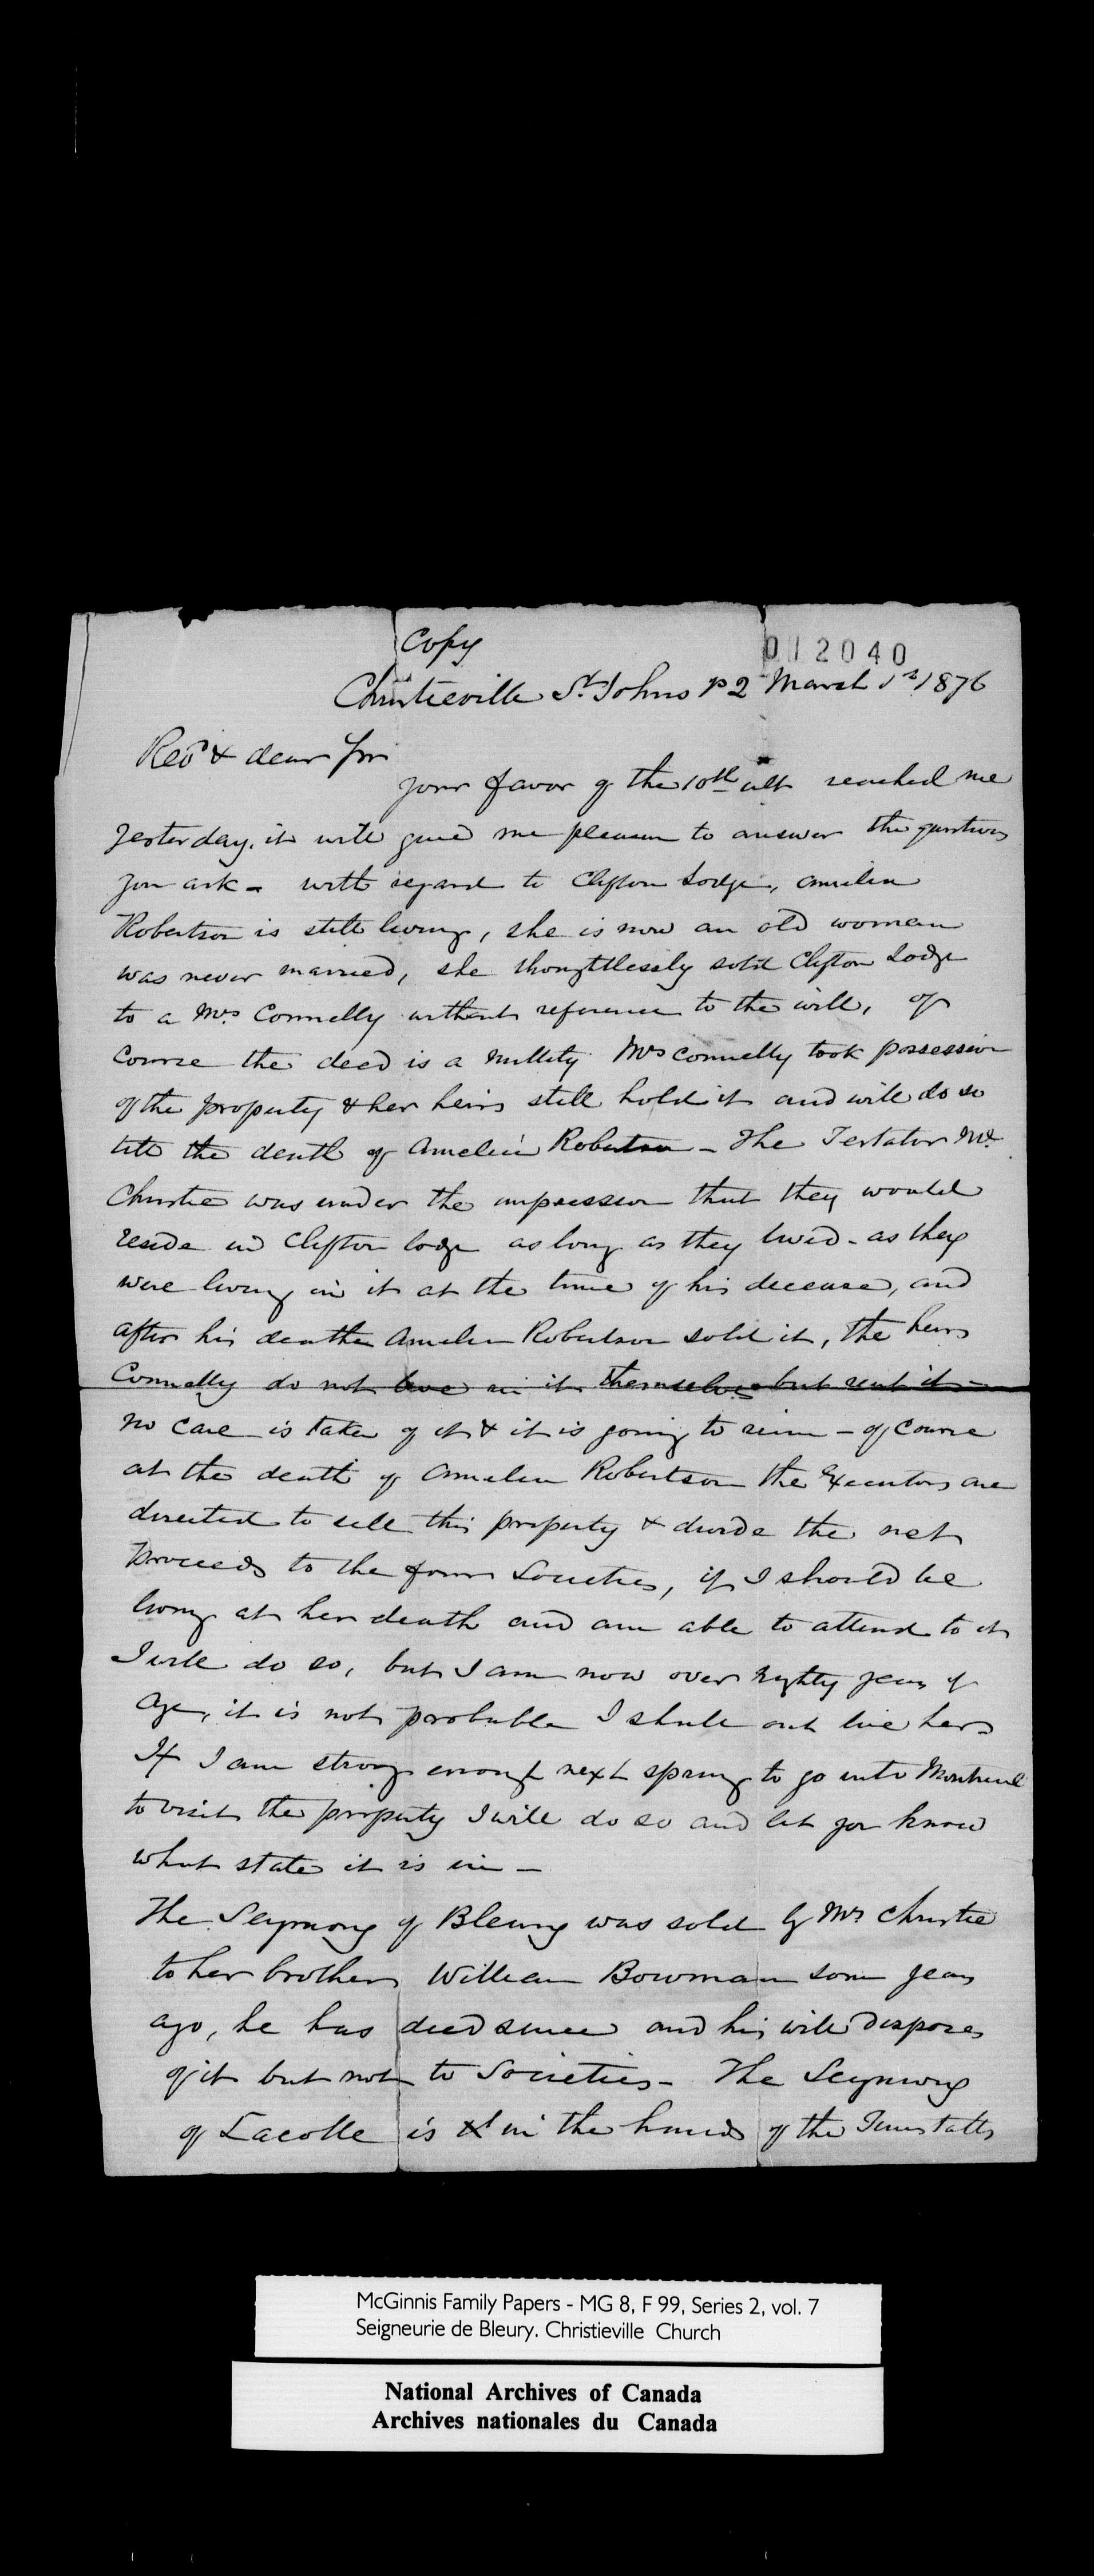 Copy
012040
Christieville St. Johns P2 March 1st 1876
Revd & dear Sir
your favor of the 10th ult reached me
yesterday. it will give me pleasure to answer the questions
you ask - with regard to Clifton Lodge, Amelia
Robertson is still living, she is now an old woman
was never married, she thoughtlessly sold Clifton Lodge
to a Mrs Connelly without reference to the will, of
Course the deed is a nullity Mrs Connelly took possession
of the property & her heirs still hold it and will do so
till the death of Amelia Robertson - The Testator Mr.
Christie was under the impression that they would
reside in Clifton lodge as long as they lived - as they
were living in it at the time of his decease, and
after his death Amelia Robertson sold it, the heirs
Connelly do not live in it themselves but rent it -
no care is taken of it & it is going to ruin - of course
at the death of Amelia Robertson the Executors are
directed to sell this property & divide the net
proceeds to the four Societies, if I should be
living at her death and am able to attend to it
I will do so, but I am now over eighty years of
age, it is not probable I shall out live her -
If I am strong enough next spring to go into Montreal
to visit the property I will do so and let you know
what state it is in -
The Seignory of Bleury was sold by Mrs Christie
to her brother William Bowman some years
ago, he has died since and his will disposes
of it but not to Societies - The Seignory
of Lacolle is in the hands of the Tunstalls
McGinnis Family Papers - MG 8, F 99, Series 2, vol. 7
Seigneurie de Bleury. Christieville Church
National Archives of Canada
Archives nationales du Canada